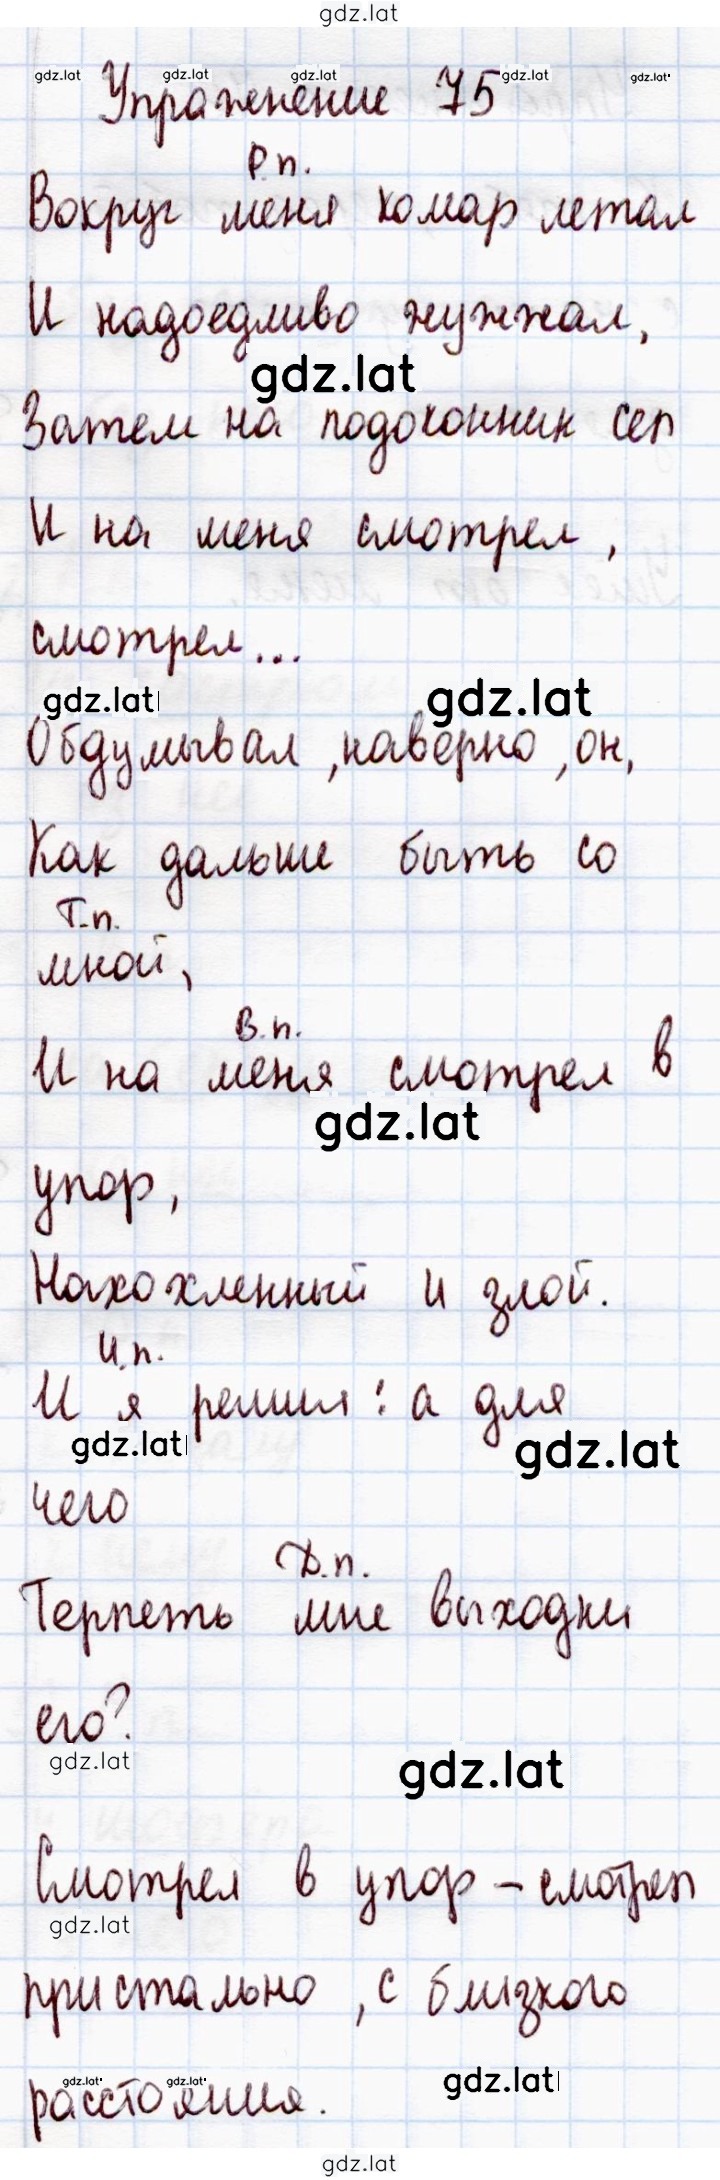 gdz.lat
gdz.lat gdz.lat gdz.lat gdz.lat gdz.lat
Упражнение 75
Р.п.
Вокруг меня комар летал
И надоедливо жужжал,
gdz.lat
Затем на подоконник сел
И на меня смотрел,
смотрел...
gdz.lat gdz.lat
Обдумывал, наверно, он,
Как дальше быть со
Т.п.
мной,
В.п.
И на меня смотрел в
gdz.lat
упор,
Нахохленный и злой.
И.п.
И я решил: а для
gdz.lat gdz.lat
чего
Д.п.
Терпеть мне выходки
его?
gdz.lat gdz.lat
Смотрел в упор – смотрел
gdz.lat
пристально, с близкого
gdz.lat gdz.lat gdz.lat
расстояния.
gdz.lat